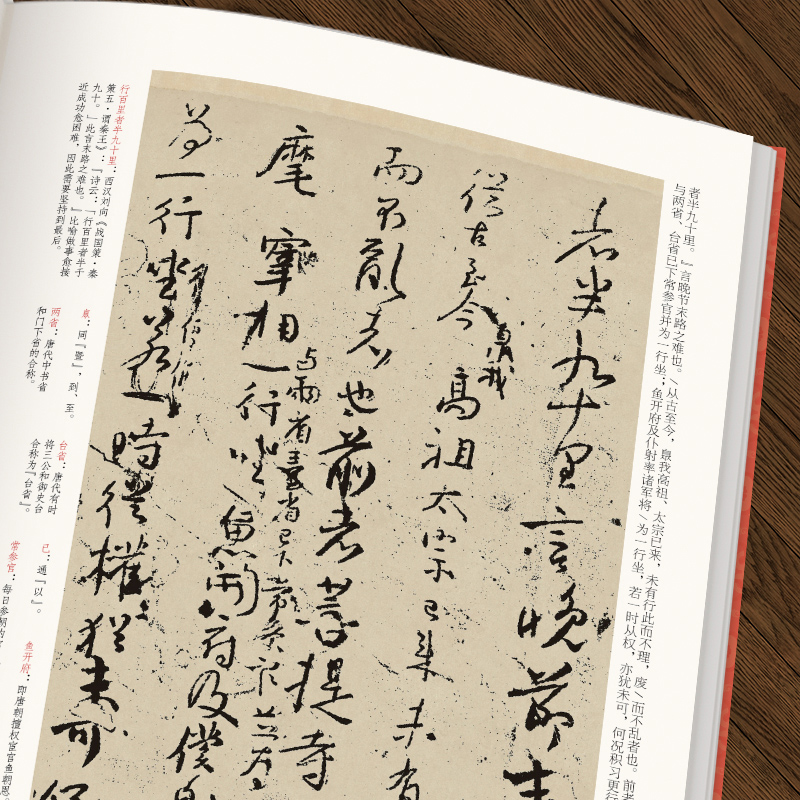 者半九十里。』言晚节末路之难也。╲从古至今,臮我高祖、太宗已来,未有行此而不理,废╲而不乱者也。前者
与两省、台省已下常参官并为一行坐;鱼开府及仆射率诸军将╲为一行坐,若一时从权,亦犹未可,何况积习更行
者半九十里言晚節末
從古至今
臮我
高祖太宗已来未有
而不亂者也前者菩提寺
与兩省臺省已下常参官並為
麾宰相一行坐魚開府及僕射
為一行坐若一時從權猶未可何
行百里者半九十里:西汉刘向《战国策·秦
策五·谓秦王》:『诗云:「行百里者半于
九十。」此言末路之难也。』比喻做事愈接
近成功愈困难,因此需要坚持到最后。
臮:同『暨』,到、至。
两省:唐代中书省
和门下省的合称。
台省:唐代有时
将三公和御史台
合称为『台省』。
已:通『以』。
常参官:每日参朝的
鱼开府:即唐朝擅权宦官鱼朝恩。